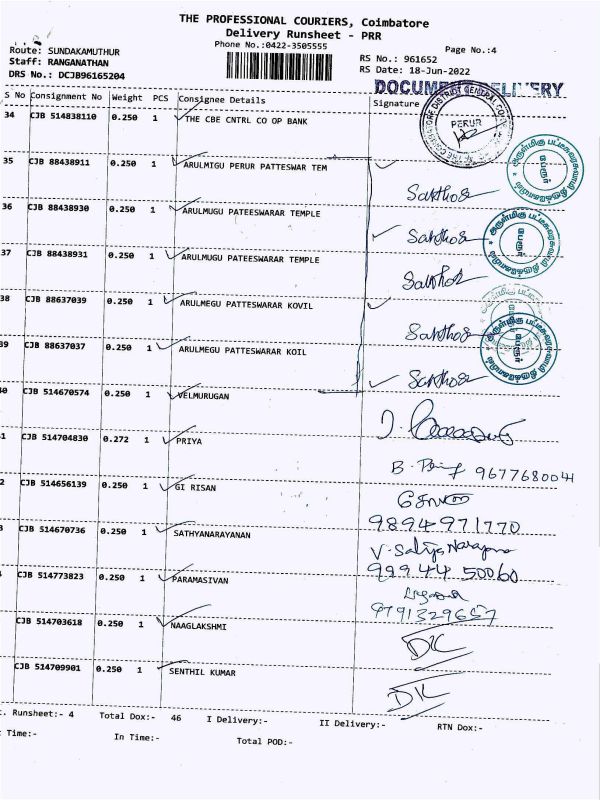 THE PROFESSIONAL COURIERS, Coimbatore
Delivery Runsheet - PRR
Phone No.:0422-3505555
Page No.:4
Route: SUNDAKAMUTHUR
RS No.: 961652
Staff: RANGANATHAN
RS Date: 18-Jun-2022
DRS No.: DCJB96165204
DOCUMENT DELIVERY
S No Consignment No Weight PCS Consignee Details Signature
34 CJB 514838110 0.250 1 THE CBE CNTRL CO OP BANK
PERUR
35 CJB 88438911 0.250 1 ARULMIGU PERUR PATTESWAR TEM
Santhosh
பேரூர்
36 CJB 88438930 0.250 1 ARULMUGU PATEESWARAR TEMPLE
Santhosh
பேரூர்
37 CJB 88438931 0.250 1 ARULMUGU PATEESWARAR TEMPLE
Santhosh
38 CJB 88637039 0.250 1 ARULMEGU PATTESWARAR KOVIL
Santhosh
பேரூர்
39 CJB 88637037 0.250 1 ARULMEGU PATTESWARAR KOIL
Santhosh
40 CJB 514670574 0.250 1 VELMURUGAN
41 CJB 514704830 0.272 1 PRIYA
B. 9677680041
2 CJB 514656139 0.250 1 GI RISAN
9894971770
3 CJB 514670736 0.250 1 SATHYANARAYANAN
V. Sathya Narayana
99944 50060
CJB 514773823 0.250 1 PARAMASIVAN
9791329657
CJB 514703618 0.250 1 NAAGLAKSHMI
DK
CJB 514709901 0.250 1 SENTHIL KUMAR
DK
. Runsheet:- 4 Total Dox:- 46 I Delivery:- II Delivery:- RTN Dox:-
Time:- In Time:- Total POD:-